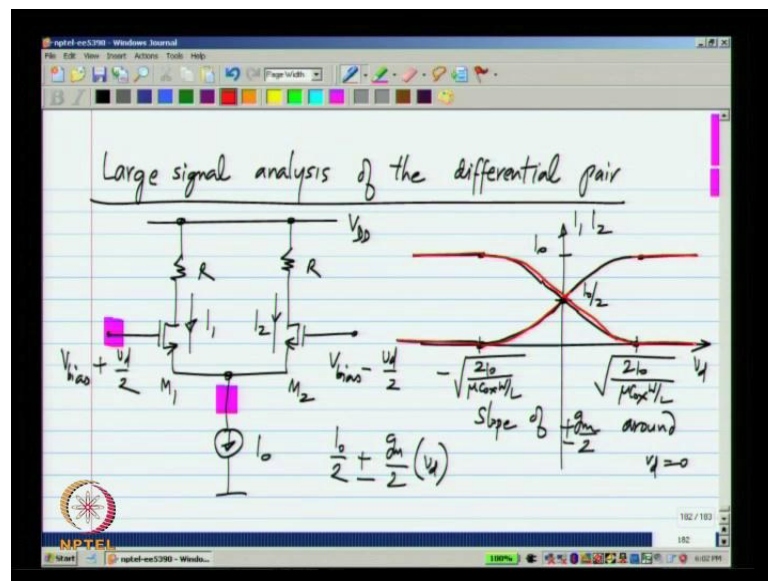 nptel-ee5390 - Windows Journal
File Edit View Insert Actions Tools Help
Page Width
B I
Large signal analysis of the differential pair
V_DD
R R
I_1 I_2
V_bias + v_d/2
M_1 M_2
V_bias - v_d/2
I_0
I_0/2 ± g_m/2 (v_d)
I_1, I_2
I_0
I_0/2
v_d
-√(2I_0/(μC_ox W/L))
√(2I_0/(μC_ox W/L))
Slope of ± g_m/2 around
v_d=0
182 / 183
182
NPTEL
Start nptel-ee5390 - Windo...
100%
6:02 PM